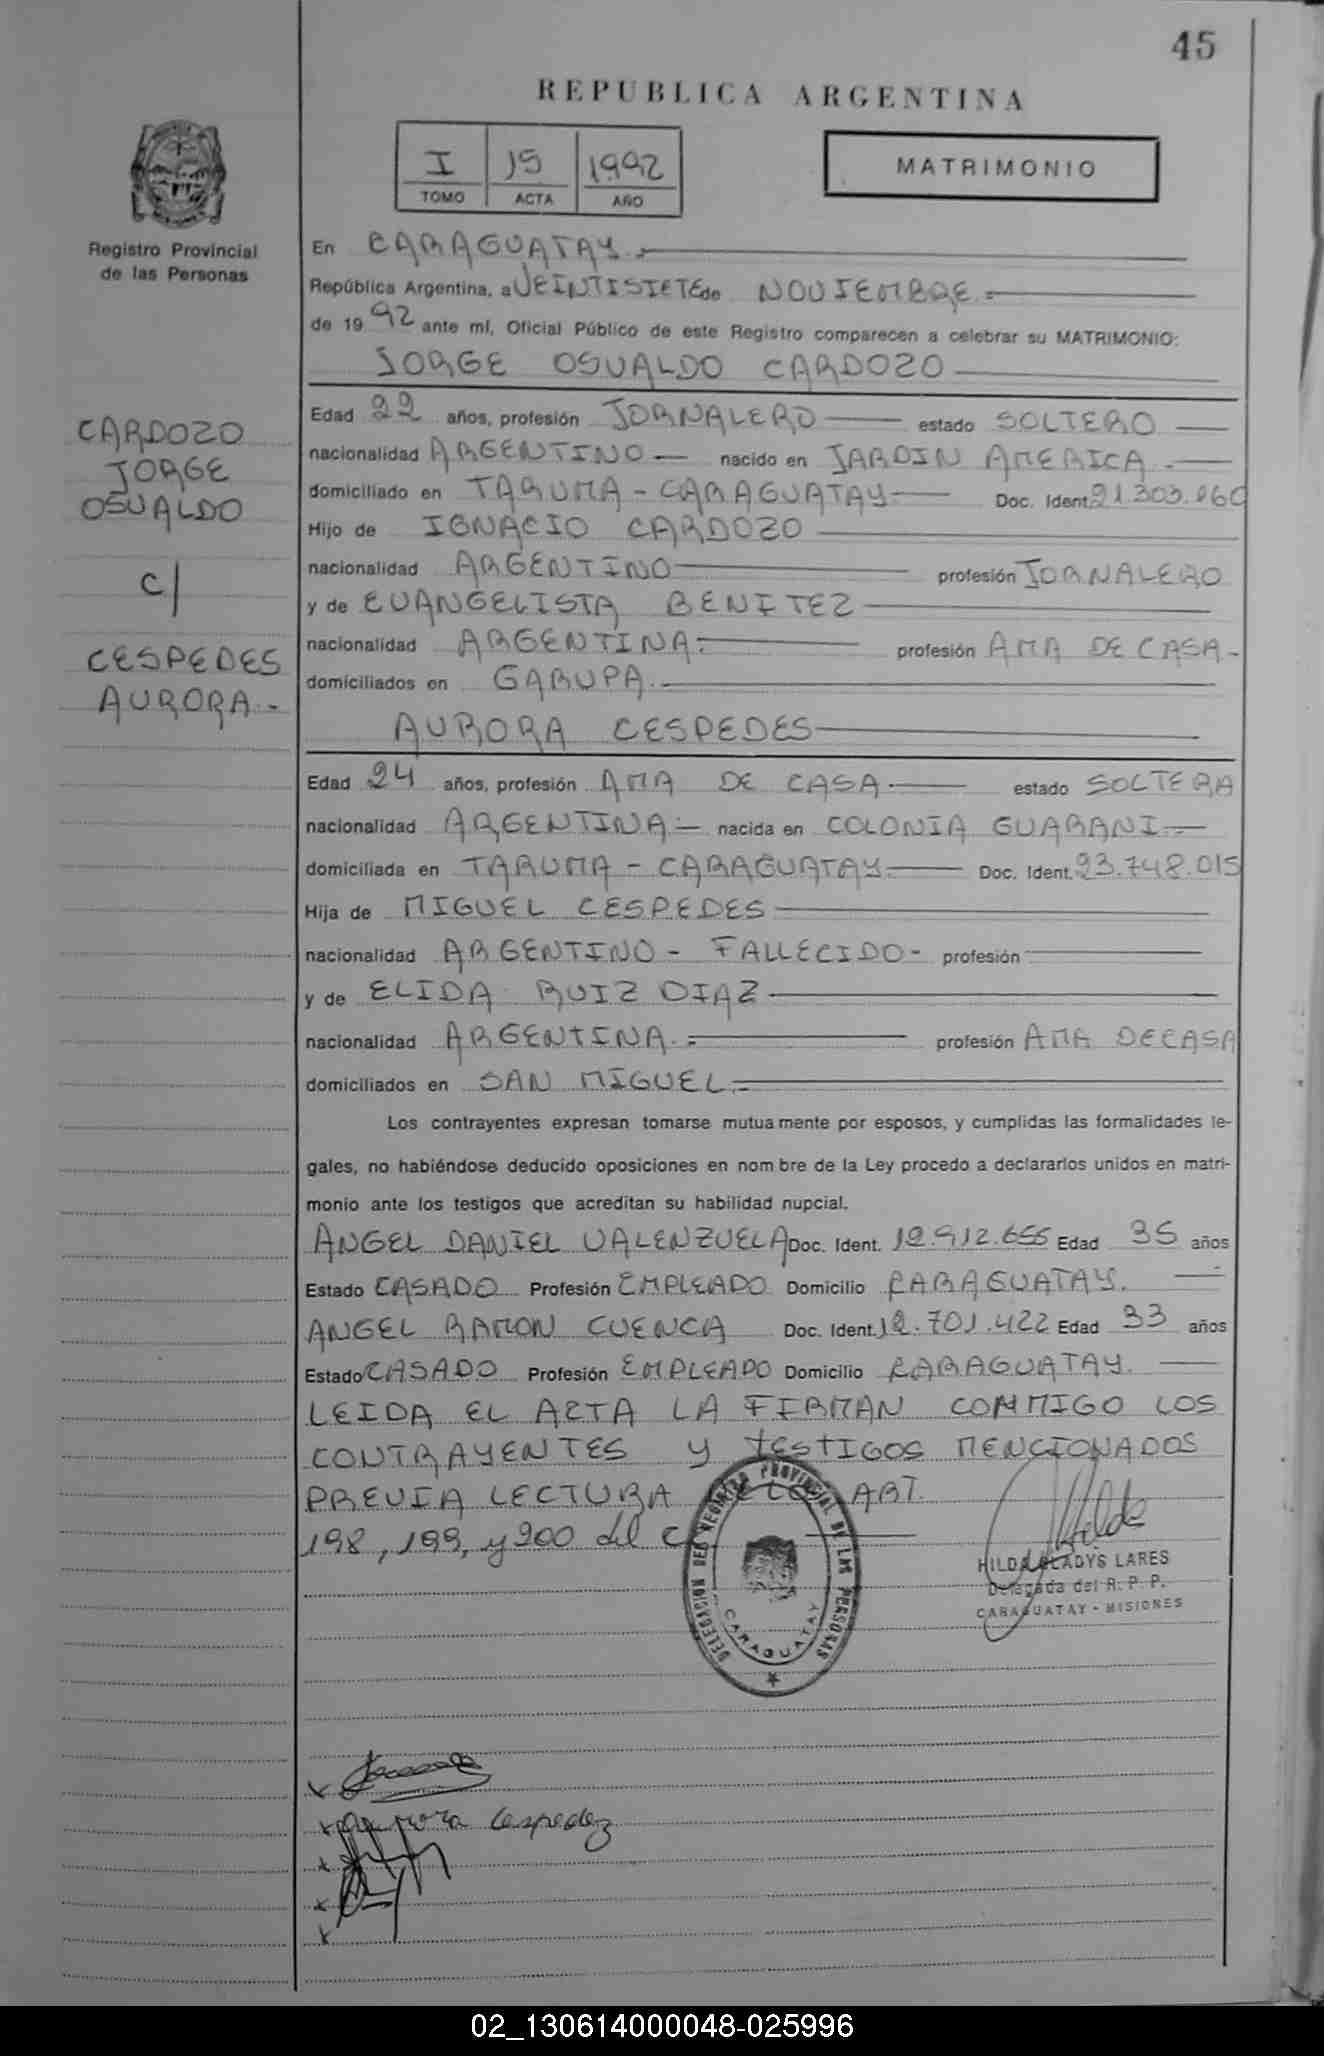 45
REPUBLICA ARGENTINA
I 15 1992
TOMO ACTA AÑO
MATRIMONIO
Registro Provincial
de las Personas
En CARAGUATAY.-
República Argentina, a VEINTISIETE de NOVIEMBRE.-
de 1992 ante mí, Oficial Público de este Registro comparecen a celebrar su MATRIMONIO:
JORGE OSVALDO CARDOZO
CARDOZO
JORGE
OSVALDO
C/
CESPEDES
AURORA.-
Edad 22 años, profesión JORNALERO estado SOLTERO
nacionalidad ARGENTINO nacido en JARDIN AMERICA.-
domiciliado en TARUMA - CARAGUATAY Doc. Ident. 21.303.060
Hijo de IGNACIO CARDOZO
nacionalidad ARGENTINO profesión JORNALERO
y de EVANGELISTA BENITEZ
nacionalidad ARGENTINA.- profesión AMA DE CASA-
domiciliados en GARUPA.
AURORA CESPEDES
Edad 24 años, profesión AMA DE CASA estado SOLTERA
nacionalidad ARGENTINA.- nacida en COLONIA GUARANI.-
domiciliada en TARUMA - CARAGUATAY.- Doc. Ident. 23.748.015
Hija de MIGUEL CESPEDES
nacionalidad ARGENTINO - FALLECIDO - profesión
y de ELIDA RUIZ DIAZ
nacionalidad ARGENTINA.- profesión AMA DE CASA
domiciliados en SAN MIGUEL.-
Los contrayentes expresan tomarse mutuamente por esposos, y cumplidas las formalidades le-
gales, no habiéndose deducido oposiciones en nombre de la Ley procedo a declararlos unidos en matri-
monio ante los testigos que acreditan su habilidad nupcial.
ANGEL DANIEL VALENZUELA Doc. Ident. 12.912.655 Edad 35 años
Estado CASADO Profesión EMPLEADO Domicilio CARAGUATAY.
ANGEL RAMON CUENCA Doc. Ident. 12.701.422 Edad 33 años
Estado CASADO Profesión EMPLEADO Domicilio CARAGUATAY.
LEIDA EL ACTA LA FIRMAN CONMIGO LOS
CONTRAYENTES y TESTIGOS MENCIONADOS
PREVIA LECTURA DE LOS ART.
198, 199, y 200 del C
DELEGACION DEL REGISTRO PROVINCIAL DE LAS PERSONAS
CARAGUATAY
Hilda
HILDA GLADYS LARES
Delegada del R. P. P.
CARAGUATAY - MISIONES
Aurora Cespedez
02_130614000048-025996